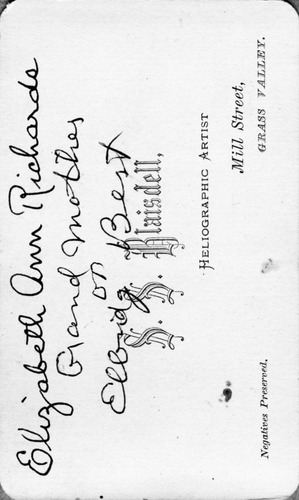 Elizabeth Ann Richards
Grand Mother
on
Elbridg Best
Blaisdell,
HELIOGRAPHIC ARTIST
Mill Street,
GRASS VALLEY.
Negatives Preserved.